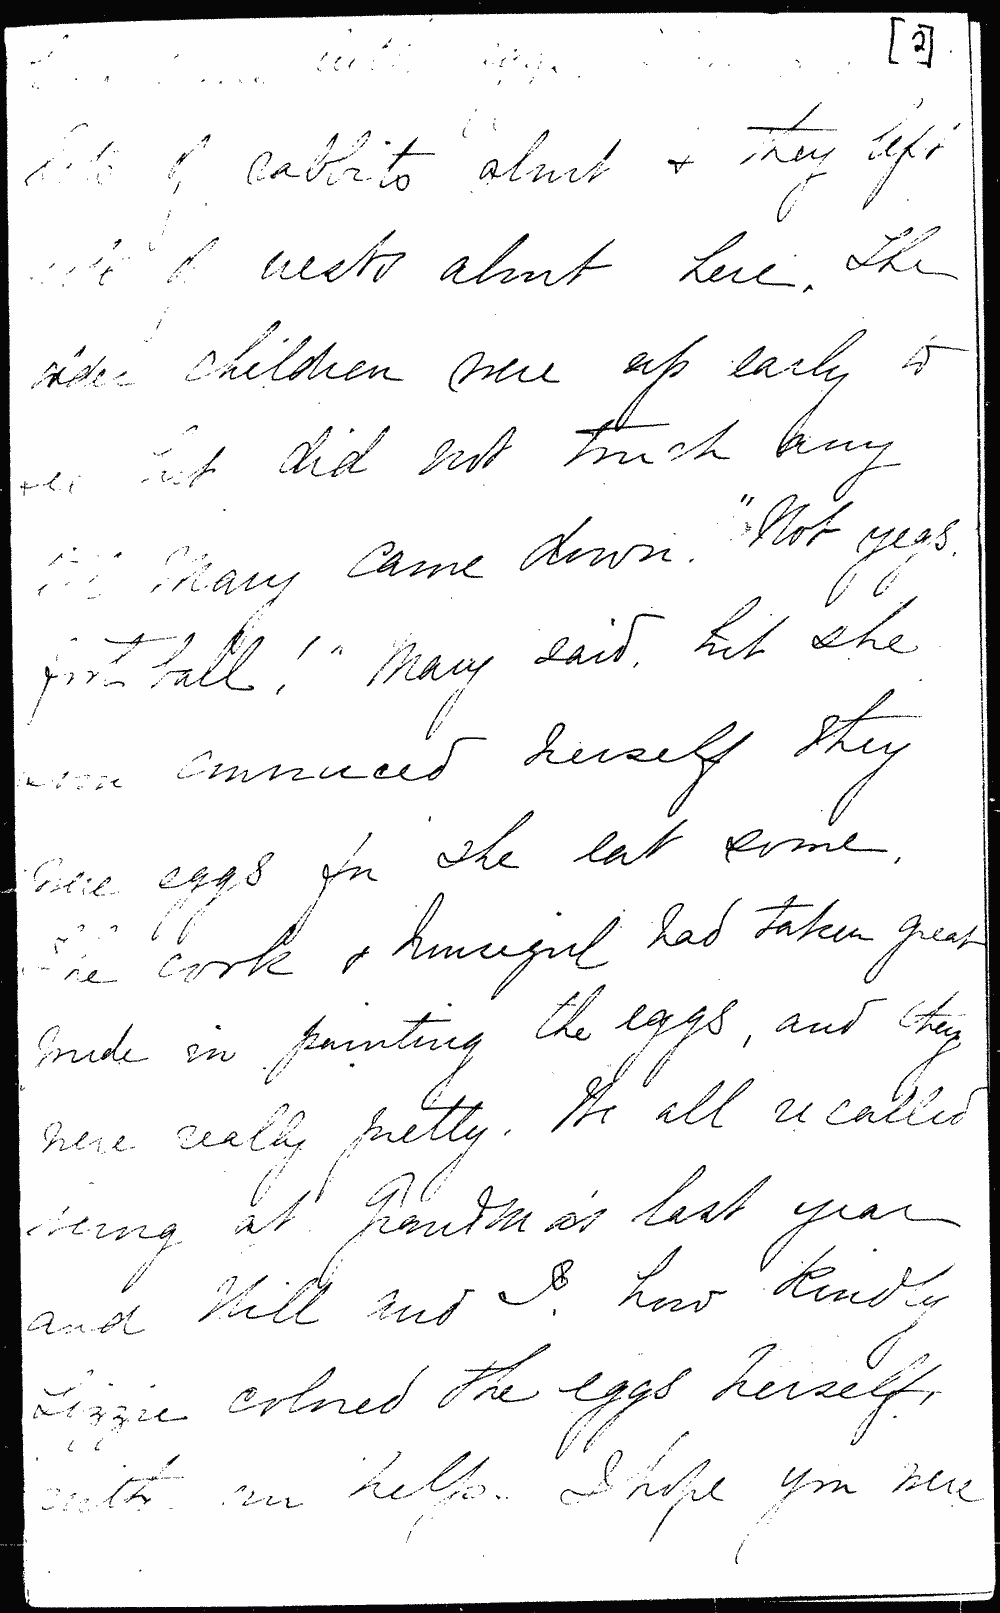 [2]
with eggs.
lots of rabbits about & they left
lots of nests about here. The
older children were up early to
see but did not touch any
till Mary came down. "Not yegs.
foot ball!" Mary said. but she
soon convinced herself they
were eggs for she eat some.
The cook & housegirl had taken great
pride in painting the eggs, and they
were really pretty. We all recalled
being at Grandma's last year
and Will and I. how kindly
Lizzie colored the eggs herself,
with our help. I hope you were